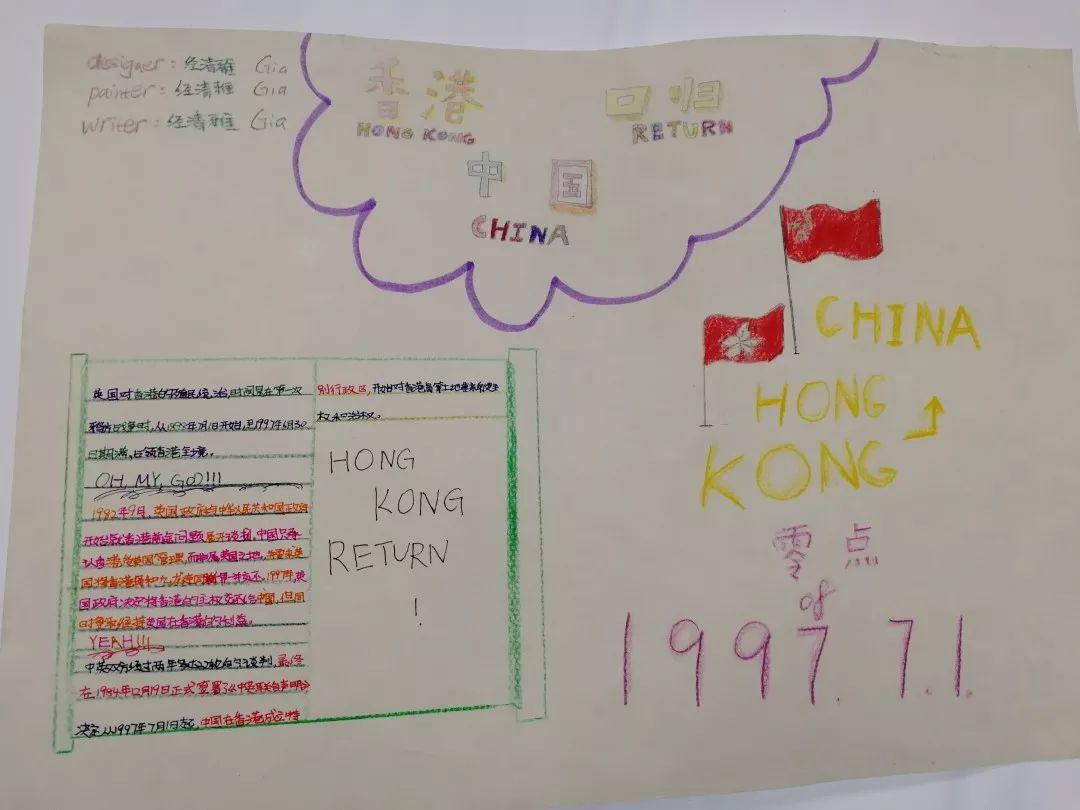 designer: 经清雅 Gia
painter: 经清雅 Gia
writer: 经清雅 Gia
香港 回归
HONG KONG RETURN
中国
CHINA
英国对香港的殖民统治,时间是在第一次
鸦片战争时,从1898年7月1日开始,至1997年6月30
日期满,占领香港全境。
OH, MY, GOD!!!
1982年9月,英国政府与中华人民共和国政府
开始就香港前途问题展开谈判,中国只承
认香港受英国管理,而非属英国之地,并要求英
国将香港岛和九龙连同新界一并交还。1997年,英
国政府决定将香港的主权交还给中国,但同
时争取维持英国在香港的利益。
YEAH!!!
中英双方经过两年多达22轮的谈判,最终
在1984年12月19日正式签署了《中英联合声明》
决定从1997年7月1日起,中国在香港成立特
别行政区,开始对香港岛
权和治权。
HONG
KONG
RETURN
!
CHINA
HONG
KONG
零点
of
1997.7.1.